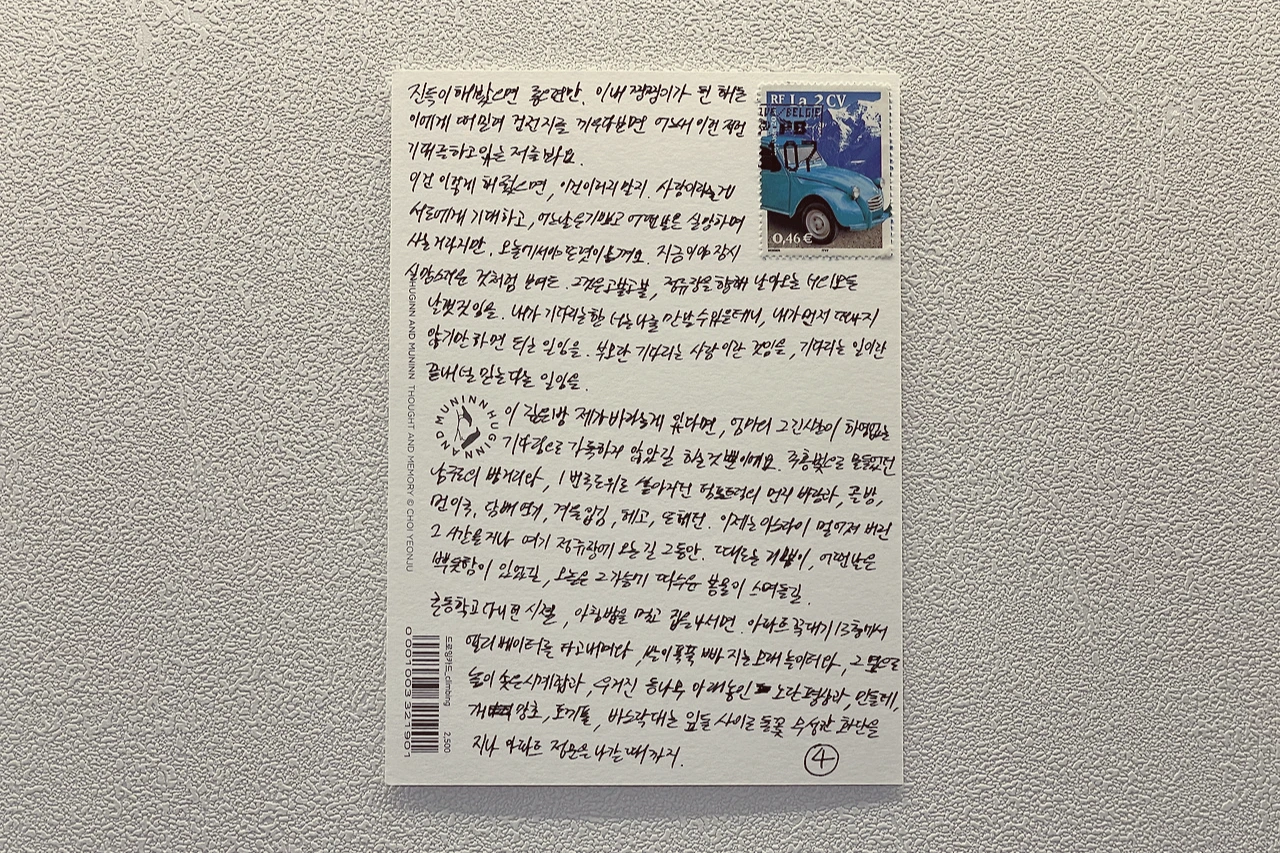 진득이 해봤으면 좋겠만. 이내 껌껌이가 된 해는
이에게 떠밀려 건전지를 끼우다보면 어느새 이런 저런
기대를 하고 있는 저를 봐요.
이건 이렇게 해줬으면, 이건 이러지 말지. 사랑이라는 게
서로에게 기대하고, 어느날은 기쁘고 어떤 날은 실망하며
사는 거라지만. 오늘에서야 또렷이 느껴요. 지금이야 잠시
실망스러운 것처럼 보여도. 그것은 고불고불, 정류장을 향해 날아오는 서리 모든
날갯짓임을. 내가 기다리는 한 너는 나를 만날 수 있을테니, 내가 먼저 떠나지
않기만 하면 되는 일임을. 부모란 기다리는 사랑이란 것임을, 기다리는 일이란
끝내 널 믿는다는 일임을.
이 깊은 밤 제가 바라는 게 있다면, 엄마의 그 긴 시간이 하염없는
기다림으로 가득하지 않았길 하는 것뿐이에요. 주홍빛으로 물들었던
남구로의 밤거리와, 1번 국도 위로 쏟아지던 덤프트럭의 먼지 바람과, 골방,
먼 이국, 담배 연기, 겨울 입김, 헤고, 또 해던. 이제는 아스라이 멀어져 버린
그 시간을 지나 여기 정류장에 오는 길 그동안. 때로는 기쁨이, 어떤 날은
뿌듯함이 있었길, 오늘은 그 가슴에 따스운 봄물이 스며들길.
초등학교 다니던 시절, 아침밥을 먹고 집을 나서면. 아파트 꼭대기 13층에서
엘리베이터를 타고 내려와, 발이 푹푹 빠지는 모래 놀이터와, 그 옆으로
높이 솟은 시계탑과, 우거진 등나무 아래 놓인 노란 평상과, 민들레,
개망초, 토끼풀, 바스락대는 잎들 사이로 들꽃 무성한 화단을
지나 아파트 정문을 나갈 때까지.
④
RF La 2CV
07
0,46 €
HUGINN AND MUNINN
HUGINN AND MUNINN THOUGHT AND MEMORY © CHOI YEONJU
드로잉카드_climbing 2,500
0001003321901